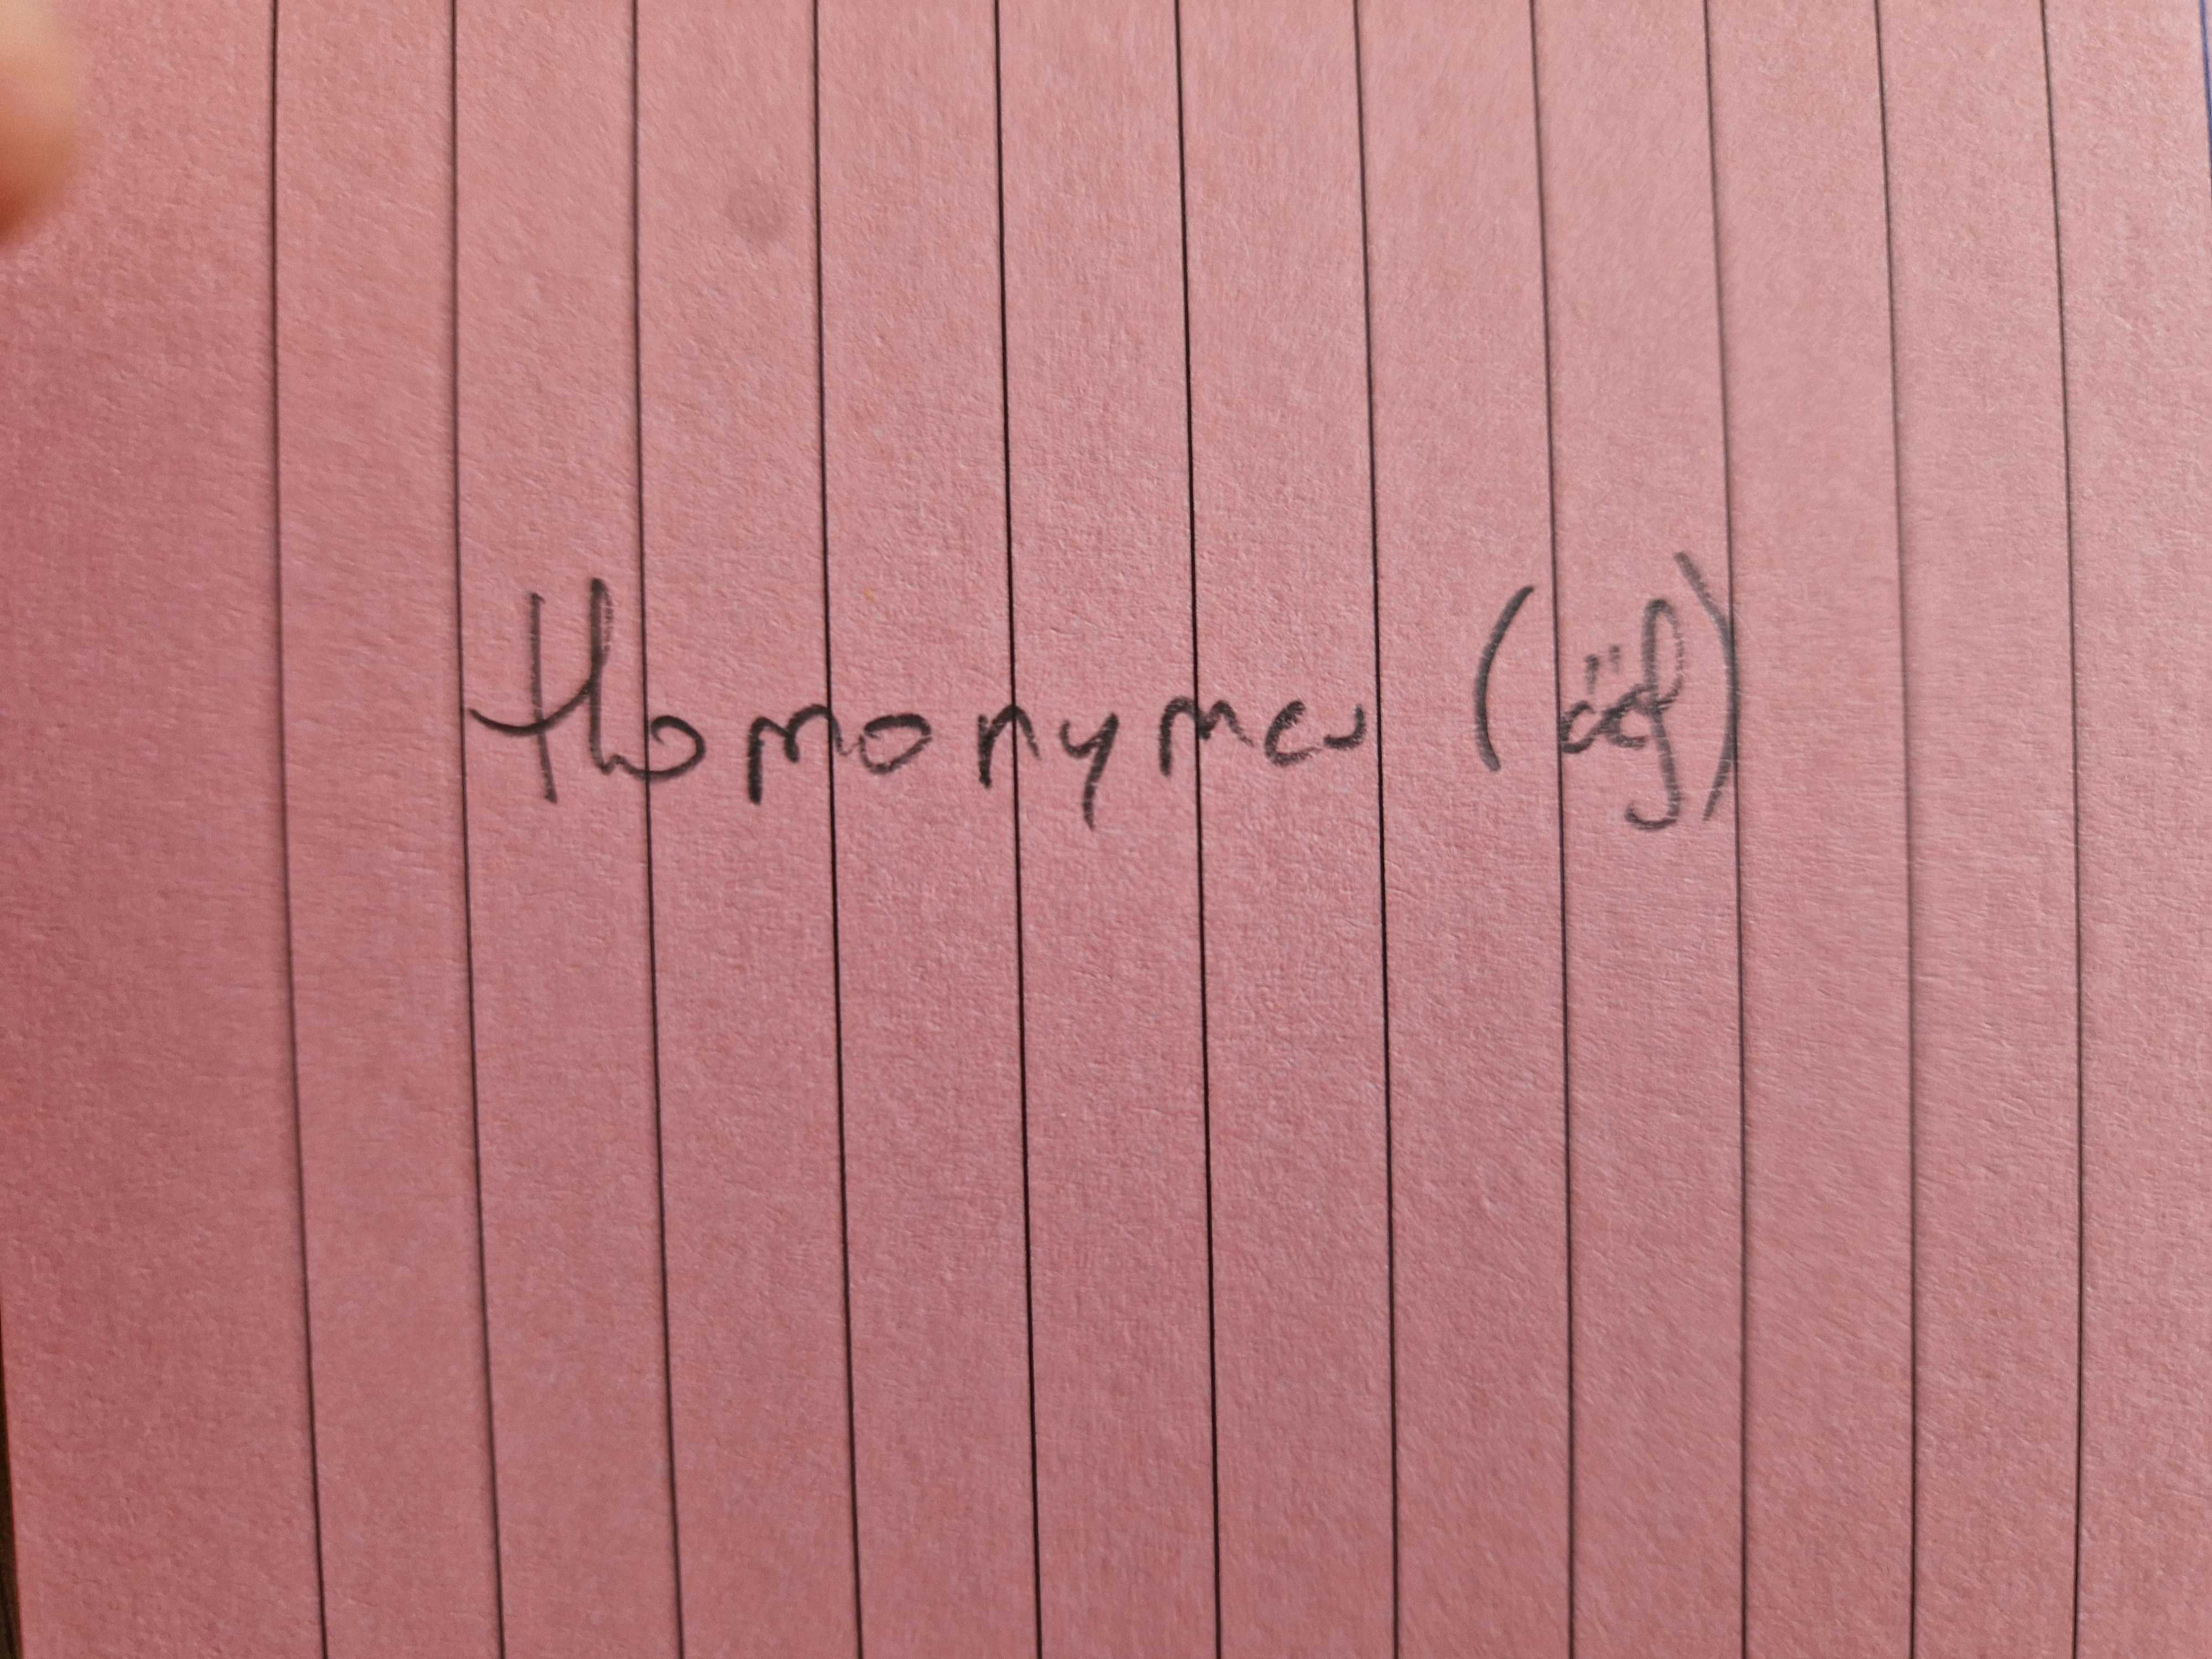 Homonymes (déf)